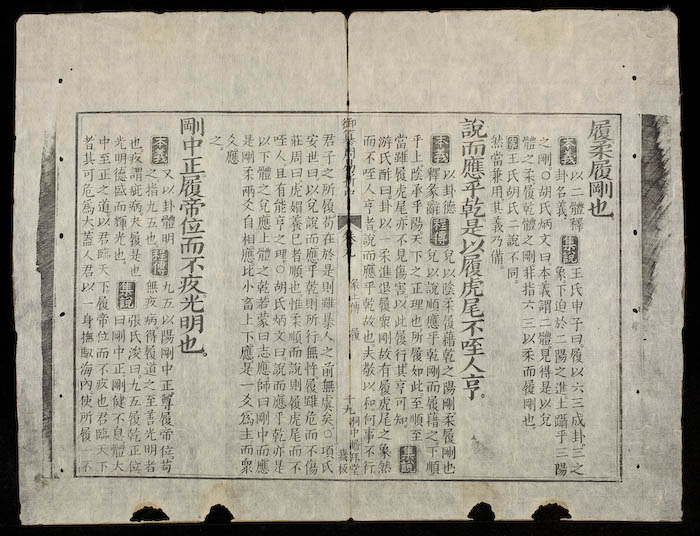 履柔履剛也。
本義 以二體釋 集說 王氏申子曰履以六三成卦三之
卦名義 象下迫於二陽之進上躡乎三陽
之剛○胡氏炳文曰本義謂二體見得是以兌
體之柔履乾體之剛非指六三以柔而履剛也
案王氏胡氏二說不同
然當兼用其義乃備
說而應乎乾是以履虎尾不咥人亨。
本義 以卦德 程傳 兌以陰柔履藉乾之陽剛柔履剛也
釋彖辭 兌以說順應乎乾剛而履藉之下順
乎上陰承乎陽天下之正理也所履如此至順至
當雖履虎尾亦不見傷害以此履行其亨可知 集說
游氏酢曰卦以一柔進退履衆剛故有履虎尾之象然
而不咥人亨者說而應乎乾故也夫敬以和何事不行
御纂周易折中 卷九 彖上傳 履 十九
君子之所履苟在於是則雖暴人之前無虞矣○項氏
安世曰以兌說而應乎乾則所行無忤履雖危而不傷
莊周曰虎媚養己者順也惟柔順而說則履虎尾而不
咥人且有能亨之理。○胡氏炳文曰說而應乎乾亦是
以下體之兌應上體之乾若蒙曰志應師曰剛中而應
是剛柔兩爻自相應比小畜上下應是一爻爲主而衆
爻應
剛中正履帝位而不疚光明也。
本義 又以卦體明 程傳 九五以陽剛中正尊履帝位苟
之指九五也 無疚病得履道之至善光明者
也疚謂疵病夬履是也 集說 張氏浚曰九五履乾正位
光明德盛而輝光也。曰剛中正剛健不息體大
中至正之道以君臨天下履帝位而不疚也君臨天下
者其可危爲大蓋人君以一身撫馭海內使所履一不